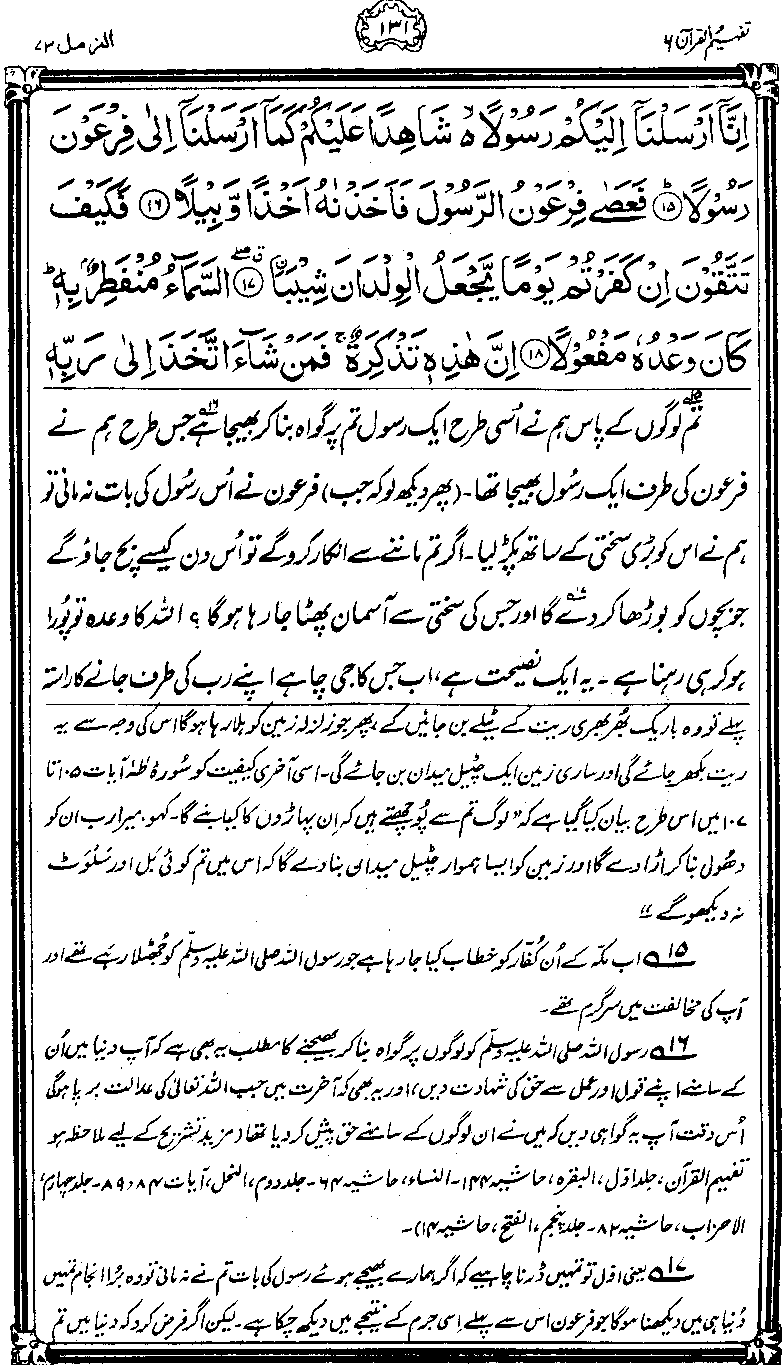 تفہیم القرآن ۶
۱۳۱
المزمل ۷۳
اِنَّاۤ اَرْسَلْنَاۤ اِلَیْكُمْ رَسُوْلًا۬ۙ شَاهِدًا عَلَیْكُمْ كَمَاۤ اَرْسَلْنَاۤ اِلٰى فِرْعَوْنَ
رَسُوْلًاؕ۝۱۵ فَعَصٰى فِرْعَوْنُ الرَّسُوْلَ فَاَخَذْنٰهُ اَخْذًا وَّبِیْلًا۝۱۶ فَكَیْفَ
تَتَّقُوْنَ اِنْ كَفَرْتُمْ یَوْمًا یَّجْعَلُ الْوِلْدَانَ شِیْبَاۗ۝۱۷ السَّمَآءُ مُنْفَطِرٌۢ بِهٖؕ
كَانَ وَعْدُهٗ مَفْعُوْلًا۝۱۸ اِنَّ هٰذِهٖ تَذْكِرَةٌۚ فَمَنْ شَآءَ اتَّخَذَ اِلٰى رَبِّهٖ
تم ۱۵ لوگوں کے پاس ہم نے اُسی طرح ایک رسول تم پر گواہ بنا کر بھیجا ۱۶ ہے جس طرح ہم نے
فرعون کی طرف ایک رسُول بھیجا تھا۔ (پھر دیکھ لو کہ جب) فرعون نے اُس رسُول کی بات نہ مانی تو
ہم نے اس کو بڑی سختی کے ساتھ پکڑ لیا۔ اگر تم ماننے سے انکار کرو گے تو اُس دن کیسے بچ جاؤ گے
جو بچوں کو بوڑھا کر دے ۱۷ گا اور جس کی سختی سے آسمان پھٹا جا رہا ہو گا؟ اللہ کا وعدہ تو پُورا
ہو کر ہی رہنا ہے۔ یہ ایک نصیحت ہے، اب جس کا جی چاہے اپنے رب کی طرف جانے کا راستہ
پہلے تو وہ باریک بھُر بھری ریت کے ٹیلے بن جائیں گے، پھر جو زلزلہ زمین کو ہلا رہا ہو گا اس کی وجہ سے یہ
ریت بکھر جائے گی اور ساری زمین ایک چٹیل میدان بن جائے گی۔ اسی آخری کیفیت کو سُورۂ طٰہٰ آیات ۱۰۵ تا
۱۰۷ میں اس طرح بیان کیا گیا ہے کہ "لوگ تم سے پُوچھتے ہیں کہ اِن پہاڑوں کا کیا بنے گا۔ کہو میرا رب ان کو
دھُول بنا کر اڑا دے گا اور زمین کو ایسا ہموار چٹیل میدان بنا دے گا کہ اس میں تم کوئی بَل اور سَلوَٹ
نہ دیکھو گے"
۱۵ اب مکّہ کے اُن کُفّار کو خطاب کیا جا رہا ہے جو رسول اللہ صلی اللہ علیہ وسلّم کو جُھٹلا رہے تھے اور
آپ کی مخالفت میں سرگرم تھے۔
۱۶ رسول اللہ صلی اللہ علیہ وسلّم کو لوگوں پر گواہ بنا کر بھیجنے کا مطلب یہ بھی ہے کہ آپ دنیا میں اُن
کے سامنے اپنے قول اور عمل سے حق کی شہادت دیں، اور یہ بھی کہ آخرت میں جب اللہ تعالیٰ کی عدالت برپا ہو گی
اُس وقت آپ یہ گواہی دیں کہ میں نے ان لوگوں کے سامنے حق پیش کر دیا تھا (مزید تشریح کے لیے ملاحظہ ہو
تفہیم القرآن، جلد اوّل، البقرہ، حاشیہ ۱۴۴۔ النساء، حاشیہ ۶۴۔ جلد دوم، النحل، آیات ۸۴، ۸۹۔ جلد چہارم،
الاحزاب، حاشیہ ۸۲۔ جلد پنجم، الفتح، حاشیہ ۱۴)۔
۱۷ یعنی اوّل تو تمہیں ڈرنا چاہیے کہ اگر ہمارے بھیجے ہوئے رسول کی بات تم نے نہ مانی تو وہ بُرا انجام تمہیں
دُنیا ہی میں دیکھنا ہو گا جو فرعون اس سے پہلے اِسی جرم کے نتیجے میں دیکھ چکا ہے۔ لیکن اگر فرض کرو کہ دنیا میں تم